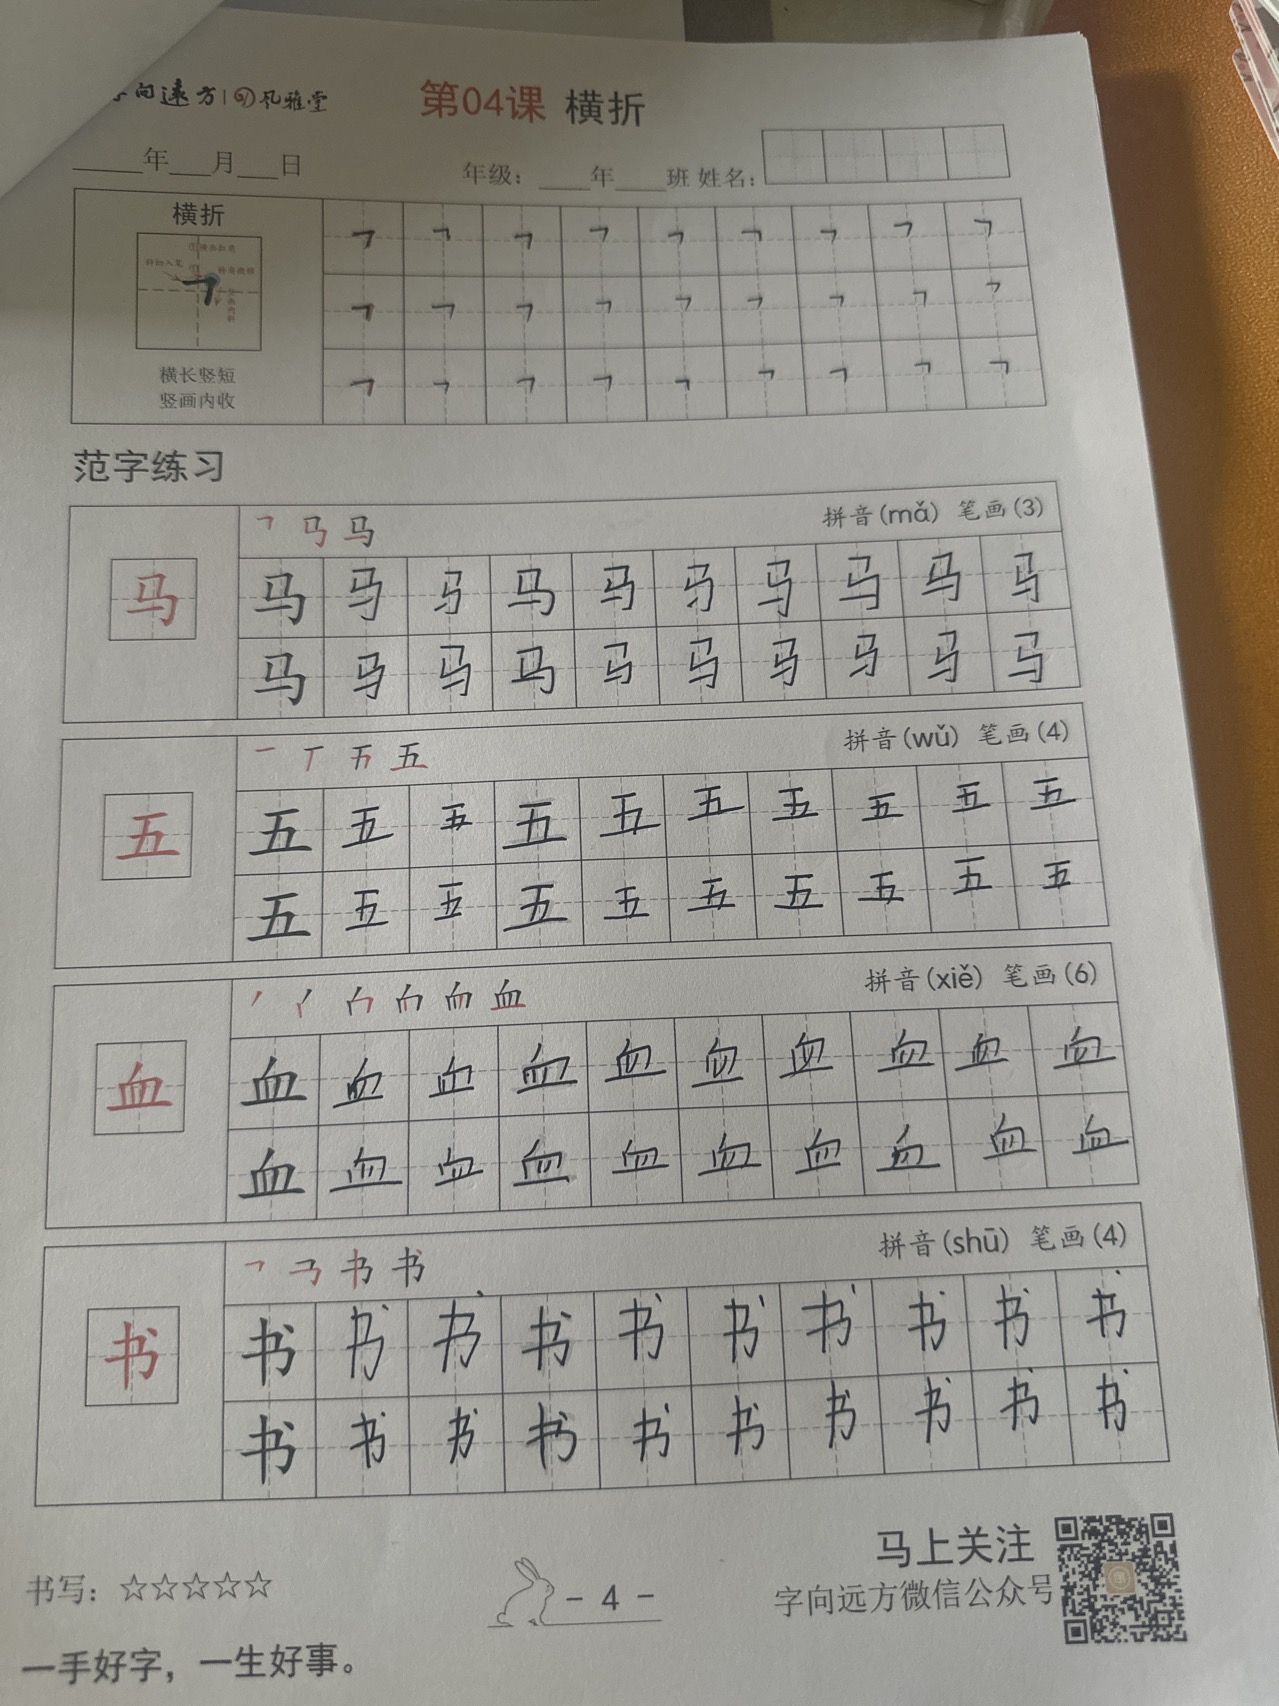 字向远方 风雅堂
第04课 横折
____年___月___日 年级：____年____班 姓名：
横折
横长竖短
竖画内收
范字练习
拼音(mǎ) 笔画(3)
马
马 马 马 马 马 马 马 马 马 马
马 马 马 马 马 马 马 马 马 马
拼音(wǔ) 笔画(4)
五
五 五 五 五 五 五 五 五 五 五
五 五 五 五 五 五 五 五 五 五
拼音(xiě) 笔画(6)
血
血 血 血 血 血 血 血 血 血 血
血 血 血 血 血 血 血 血 血 血
拼音(shū) 笔画(4)
书
书 书 书 书 书 书 书 书 书 书
书 书 书 书 书 书 书 书 书 书
马上关注
字向远方微信公众号
书写：☆☆☆☆☆
- 4 -
一手好字，一生好事。